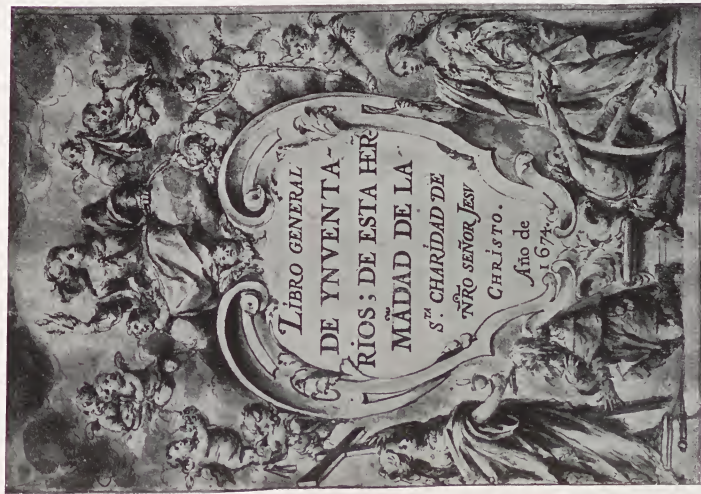 LiBRO GENERAL
DE YNVENTA-
RiOS; DE ESTA HER-
M͠ADAD DE LA
S.ᵀᴬ CHARiDAD DE
ÑRO SEÑOR JESV
CHRiSTO.
Año de
1674.